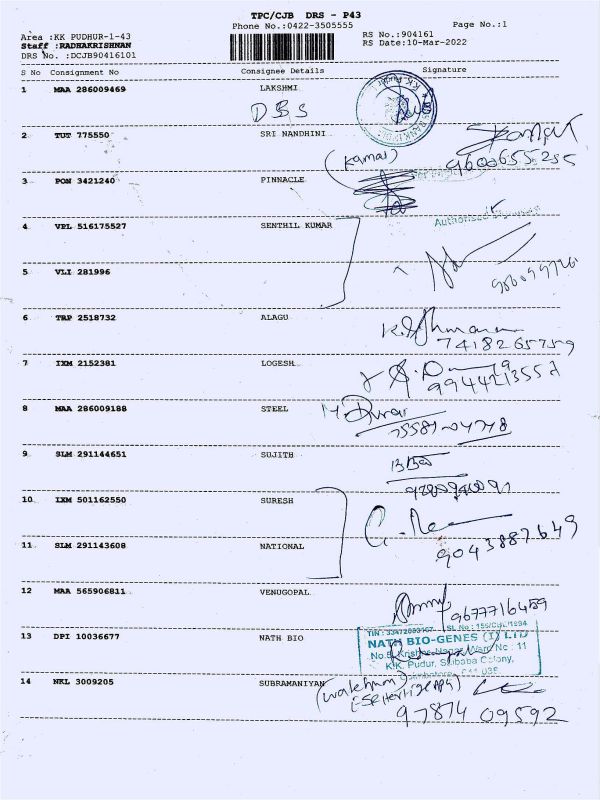 TPC/CJB DRS - P43
Phone No.:0422-3505555
Page No.:1
Area :KK PUDHUR-1-43
RS No.:904161
Staff :RADHAKRISHNAN
RS Date:10-Mar-2022
DRS No. :DCJB90416101
S No Consignment No Consignee Details Signature
1 MAA 286009469 LAKSHMI
DBS
2 TUT 775550 SRI NANDHINI
(Kamal)
9600655255
3 PON 3421240 PINNACLE
Authorised
4 VPL 516175527 SENTHIL KUMAR
5 VLI 281996
6 TRP 2518732 ALAGU
7418265759
7 IXM 2152381 LOGESH
8 MAA 286009188 STEEL
9 SLM 291144651 SUJITH
10 IXM 501162550 SURESH
9043887649
11 SLM 291143608 NATIONAL
12 MAA 565906811 VENUGOPAL
9677716459
13 DPI 10036677 NATH BIO
NATH BIO-GENES (I) LTD
Ward No : 11
K.K. Pudur, Saibaba Colony,
14 NKL 3009205 SUBRAMANIYAN
97874 09592